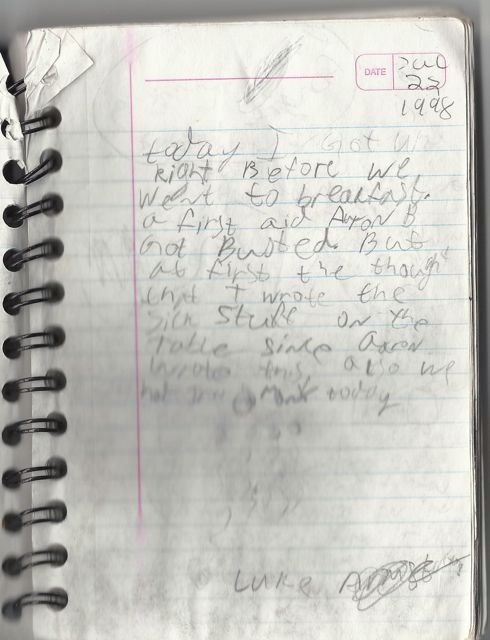 DATE
Jul
22
1998
today I Got up
Right Before we
went to breakfast.
a first aid Aaron B
Got Busted. But
at first the thought
that I wrote the
Sick Stuff on the
Table since Aaron
wrote this also we
today
Luke